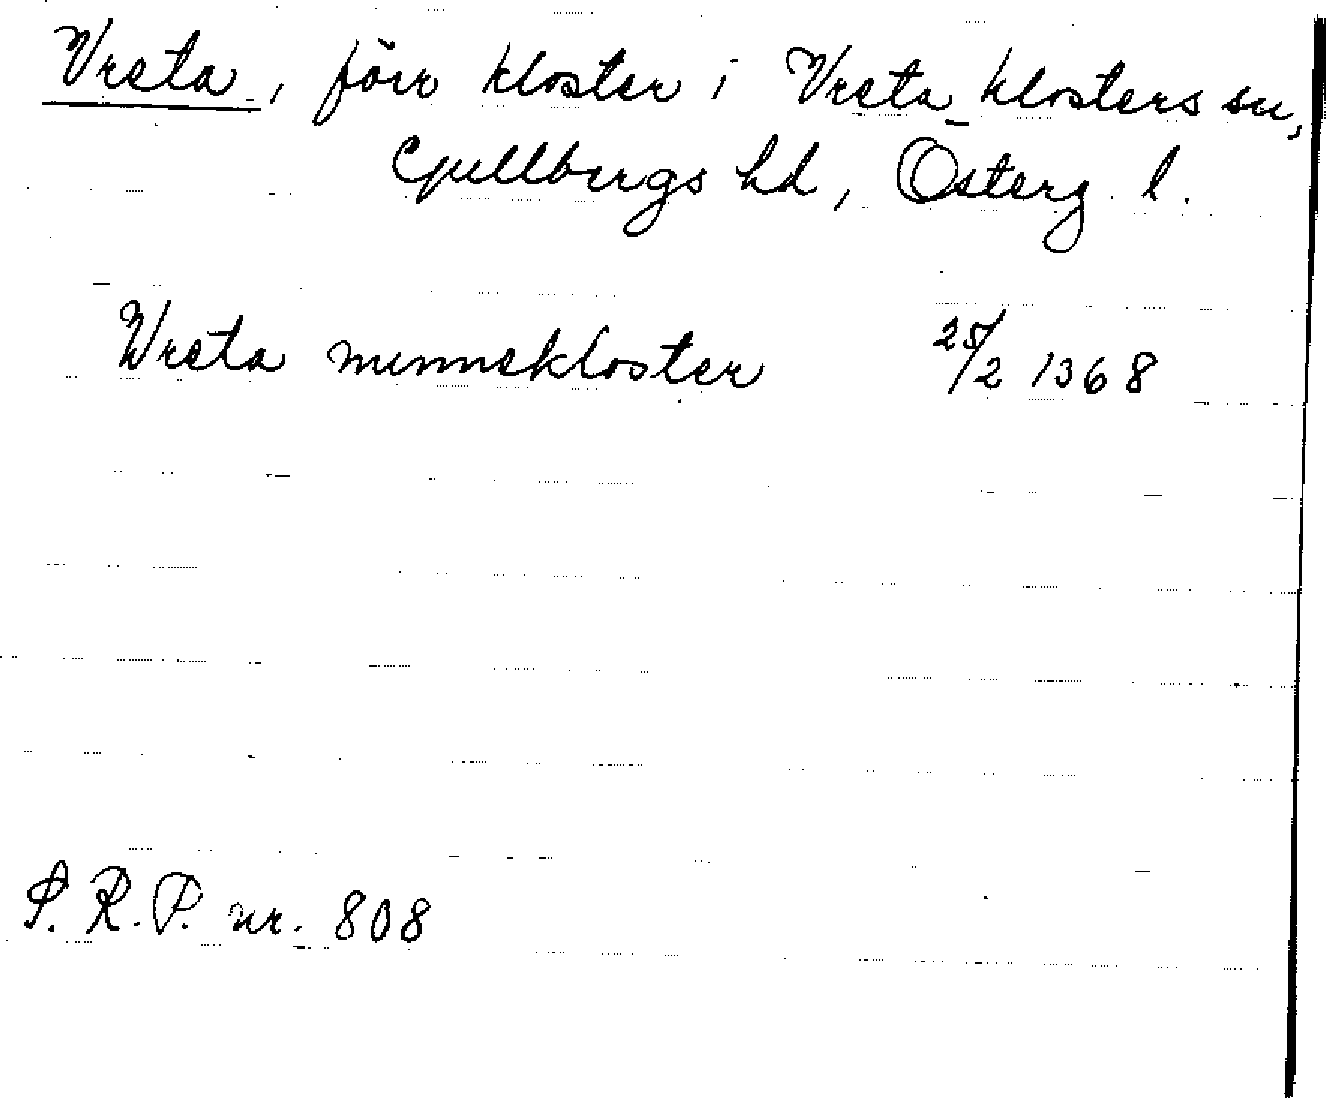 Vreta, förr kloster i Vreta klosters sn,
Gullbergs hd, Österg. l.
Wreta nunnekloster 25/2 1368
S. R. P. nr. 808